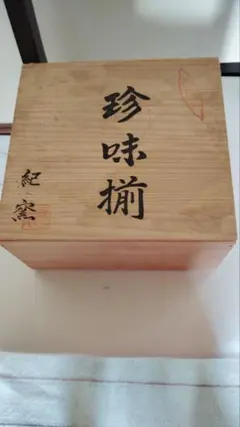 珍味揃
紀窯